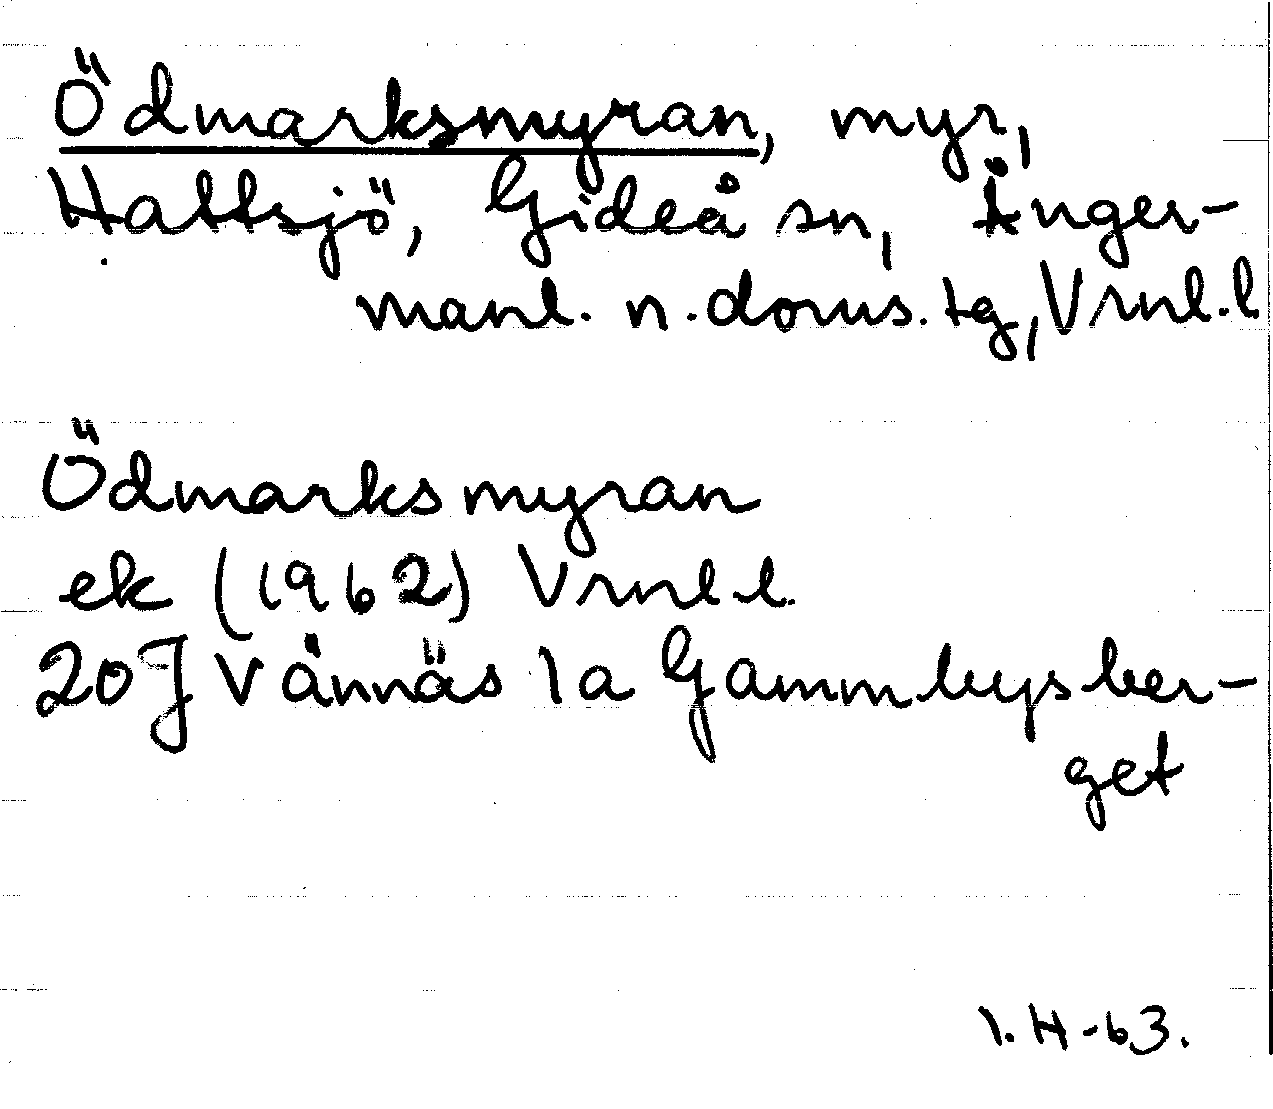 Ödmarksmyran, myr,
Hattsjö, Gideå sn, Ånger-
manl. n. doms. tg, Vrnl. l
Ödmarksmyran
ek (1962) Vrnl. l.
20J Vännäs 1a Gammbysber-
get
I. H-63.